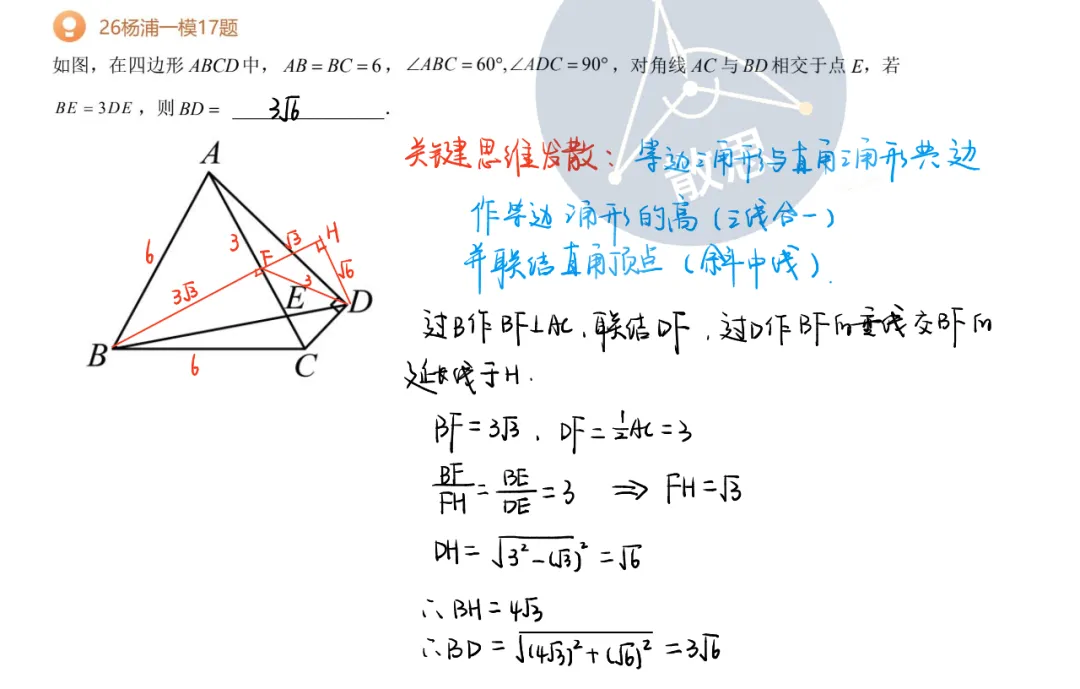 26杨浦一模17题
如图，在四边形 ABCD 中， AB = BC = 6 ， ∠ABC = 60°, ∠ADC = 90° ，对角线 AC 与 BD 相交于点 E，若
BE = 3DE ，则 BD = 3√6 .
关键思维发散：等边三角形与直角三角形共边
敢思
作等边三角形的高（三线合一）
并联结直角顶点（斜中线）.
A
6
3
F
√3
H
√6
3
3√3
E
D
B
6
C
过B作BF⊥AC，联结DF，过D作BF的垂线交BF的
延长线于H.
BF = 3√3 , DF = 1/2 AC = 3
BF/FH = BE/DE = 3 ⇒ FH = √3
DH = √(3² - (√3)²) = √6
∴ BH = 4√3
∴ BD = √((4√3)² + (√6)²) = 3√6